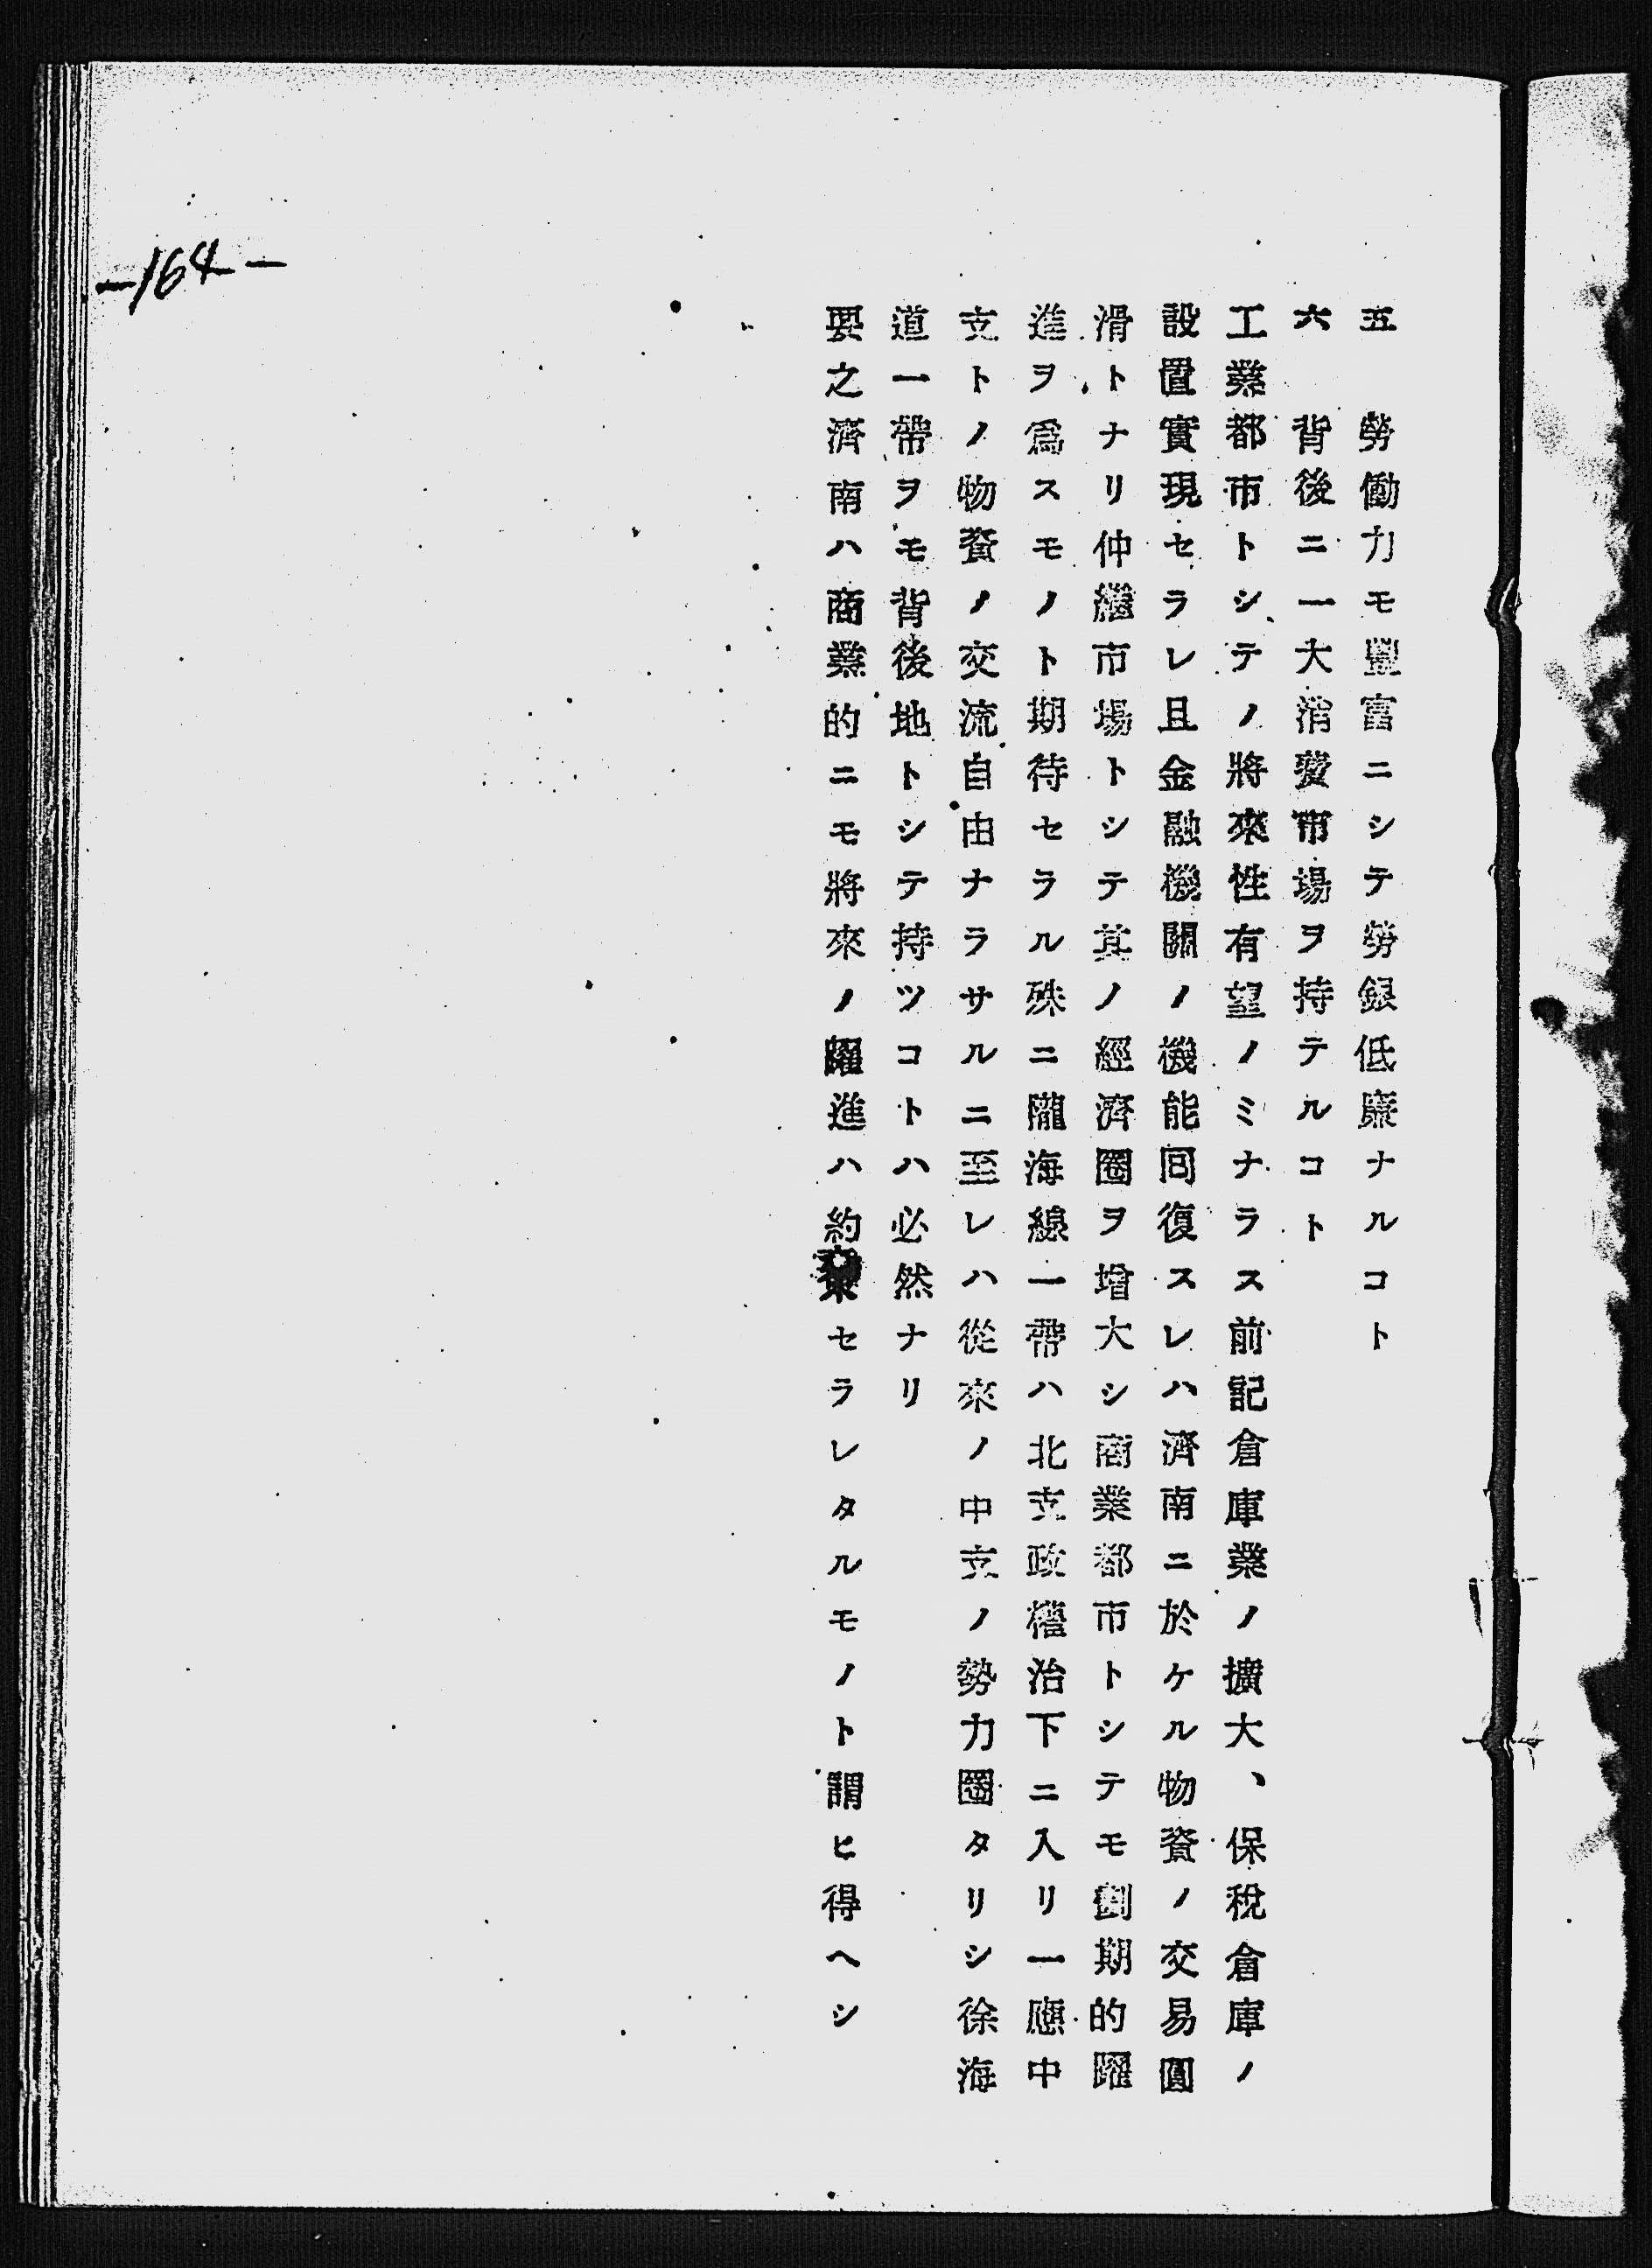 五　勞働力モ豐富ニシテ勞銀低廉ナルコト
六　背後ニ一大消費市場ヲ持テルコト
工業都市トシテノ將來性有望ノミナラス前記倉庫業ノ擴大、保稅倉庫ノ
設置實現セラレ且金融機關ノ機能囘復スレハ濟南ニ於ケル物資ノ交易圓
滑トナリ仲繼市場トシテ其ノ經濟圈ヲ增大シ商業都市トシテモ劃期的躍
進ヲ爲スモノト期待セラル殊ニ隴海線一帶ハ北支政權治下ニ入リ一應中
支トノ物資ノ交流自由ナラサルニ至レハ從來ノ中支ノ勢力圈タリシ徐海
道一帶ヲモ背後地トシテ持ツコトハ必然ナリ
要之濟南ハ商業的ニモ將來ノ躍進ハ約束セラレタルモノト謂ヒ得ヘシ
—164—